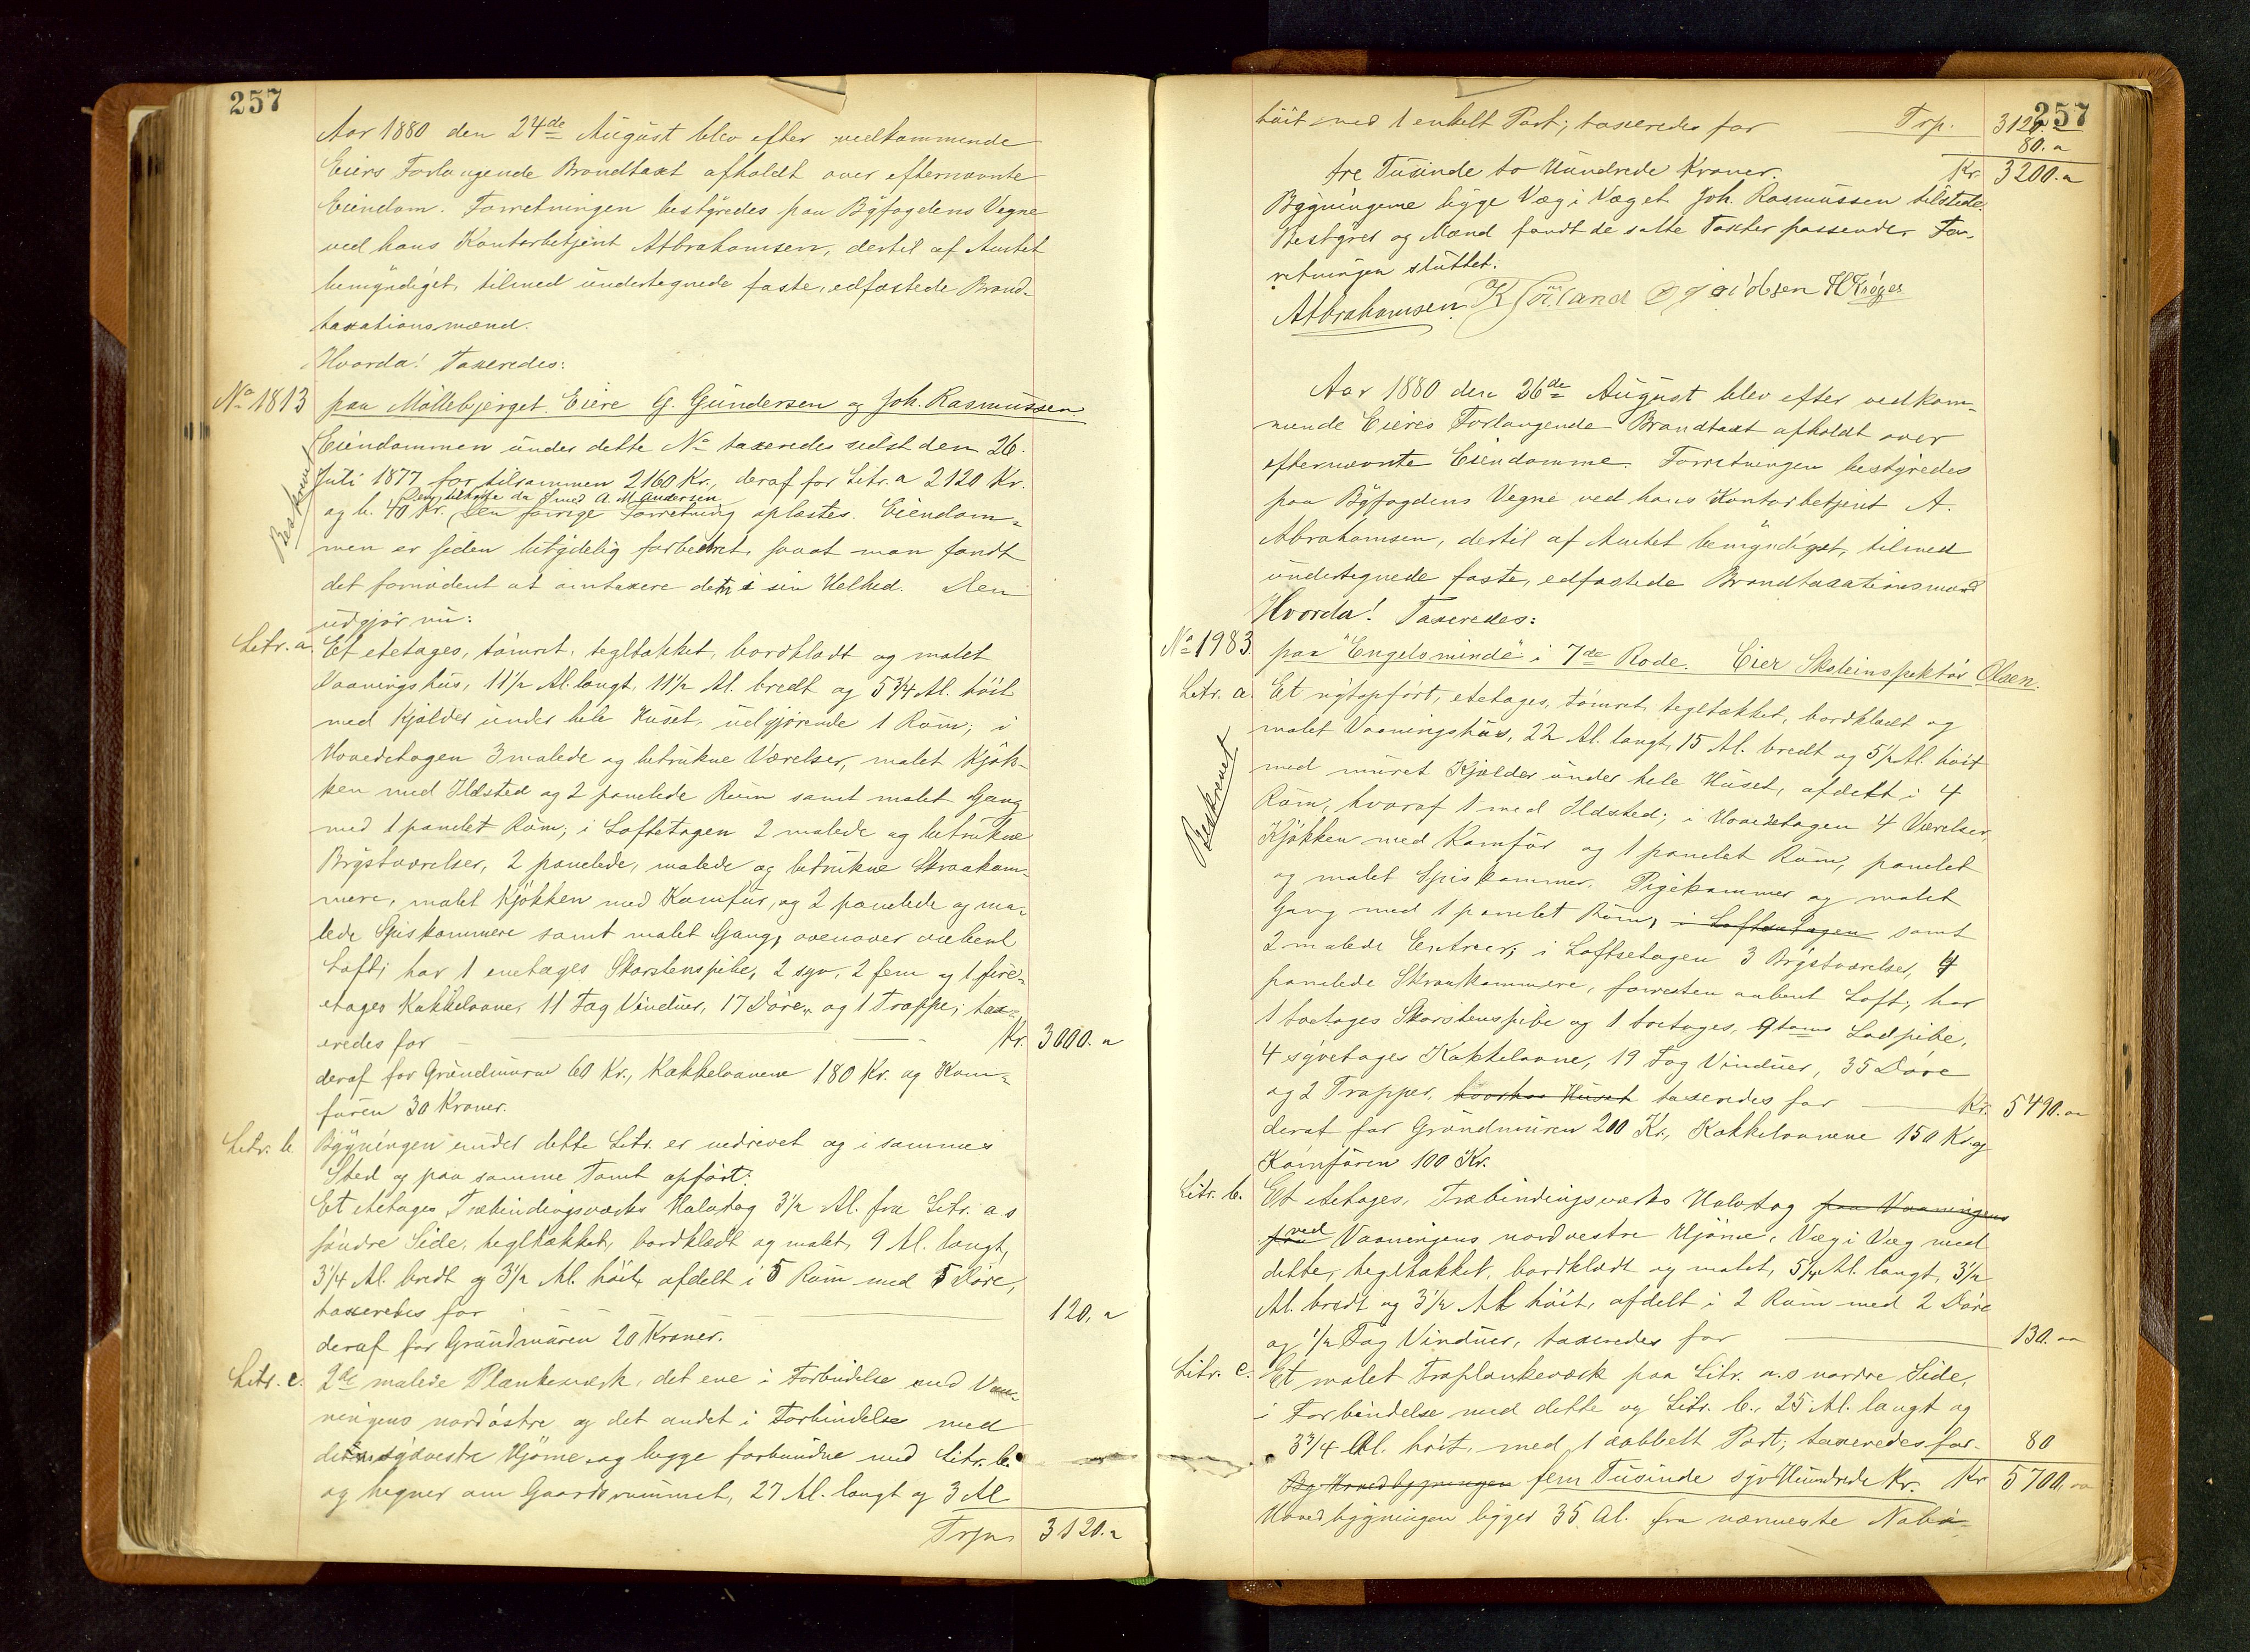 257
Aar 1880 den 24de August blev efter vedkommende
Eiers Forlangende Brandtaxt afholdt over efternævnte
Eiendom. Forretningen bestyredes paa Byfogdens Vegne
ved hans Kontorbetjent A Abrahamsen, dertil af Amtet
bemyndiget, tilmed undertegnede faste, edfæstede Brand-
taxationsmænd.
Hvorda! Taxeredes:
No 1813 paa Möllebjerget. Eiere G. Gundersen og Joh. Rasmussen.
Beskrevet
Eiendommen under dette No taxeredes sidst den 26.
Juli 1877 for tilsammen 2160 Kr., deraf for Litr. a 2120 Kr.
Den tilhørte da Smed A. M. Andersen
og b. 40 Kr. Den forrige Forretning oplæstes. Eiendom-
men er siden betydelig forbedret, saaat man fandt
det fornödent at omtaxere den i sin Helhed. Den
udgjör nu:
Litr. a. Et etetages, tömret, tegltækket, bordklædt og malet
Vaaningshus, 11½ Al. langt, 11½ Al. bredt og 5¾ Al. höit
med Kjælder under hele Huset, udgjörende 1 Rum; i
Hovedetagen 3 malede og betrukne Værelser, malet Kjök-
ken med Ildsted og 2 panelede Rum samt malet Gang
med 1 panelet Rum; i Loftetagen 2 malede og betrukne
Brystværelser, 2 panelede, malede og betrukne Skraakam-
mere, malet Kjökken med Komfur, og 2 panelede og ma-
lede Spiskammere samt malet Gang, ovenover aabent
Loft; har 1 enetages Skorstenspibe, 2 syv, 2 fem og 1 fire-
etages Kakkelovne, 11 Fag Vinduer, 17 Döre, og 1 Trappe; tax-
eredes for Kr. 3000. "
deraf for Grundmuren 60 Kr., Kakkelovnene 180 Kr. og Kom-
furen 30 Kroner.
Litr. b. Bygningen under dette Litr. er nedrevet og i sammes
Sted og paa samme Tomt opfört:
Et etetages Træbindingsværks Halvtag 3½ Al. fra Litr. a.s
söndre Side, tegltækket, bordklædt og malet, 9 Al. langt,
3¼ Al. bredt og 3½ Al. höit, afdelt i 5 Rum med 5 Döre,
taxeredes for 120. "
deraf for Grundmuren 20 Kroner.
Litr. c. 2de malede Plankeværk, det ene i Forbindelse med Vaa-
ningens nordöstre og det andet i Forbindelse med
dens sydvestre Hjörne og begge forbundne med Litr. b.
og hegner om Gaardsrummet, 27 Al. langt og 3 Al
Trp. 3120. "
257
höit med 1 enkelt Port; taxeredes for Trp. 3120. "
80. "
tre Tusinde to Hundrede Kroner. Kr. 3200. "
Bygningerne ligge Væg i Væg et Joh. Rasmussen tilstede.
Bestyrer og Mænd fandt de satte Taxter passende. For-
retningen sluttet.
A Abrahamsen. Jacobsen H Kröger
Aar 1880 den 26de August blev efter vedkom-
mende Eieres Forlangende Brandtaxt afholdt over
efternævnte Eiendomme. Forretningen bestyredes
paa Byfogdens Vegne ved hans Kontorbetjent A.
Abrahamsen, dertil af Amtet bemyndiget, tilmed
undertegnede faste, edfæstede Brandtaxationsmænd
Hvorda! Taxeredes:
No 1983. paa "Engelsminde" i 7de Rode. Eier Skoleinspektör Olsen.
Beskrevet
Litr. a. Et nytopfört, etetages, tömret, tegltækket, bordklædt og
malet Vaaningshus, 22 Al. langt, 15 Al. bredt og 5½ Al. höit
med muret Kjælder under hele Huset, afdelt i 4
Rum, hvoraf 1 med Ildsted; i Hovedetagen 4 Værelser,
Kjökken med Komfur og 1 panelet Rum, panelet
og malet Spiskammer, Pigekammer og malet
Gang med 1 panelet Rum, i Loftsetagen samt
2 malede Entreer; i Loftsetagen 3 Brystværelser, 4
panelede Skraakammere, forresten aabent Loft; har
1 toetages Skorstenspibe og 1 toetages, 9toms Lodpibe,
4 syvetages Kakkelovne, 19 Fag Vinduer, 35 Döre
og 2 Trapper, hvorhos Huset taxeredes for Kr. 5490. "
deraf for Grundmuren 200 Kr., Kakkelovnene 150 Kr. og
Komfuren 100 Kr.
Litr. b. Et etetages, Træbindingsværks Halvtag paa Vaaningens
paa ved Vaaningens nordvestre Hjörne, Væg i Væg med
dette, tegltækket, bordklædt og malet, 5¼ Al. langt, 3½
Al. bredt og 3½ Al. höit, afdelt i 2 Rum med 2 Döre
og ½ Fag Vinduer, taxeredes for 130. "
Litr. c. Et malet Træplankeværk paa Litr. a.s nordre Side,
i Forbindelse med dette og Litr. b., 25 Al. langt og
3¾ Al. höit, med 1 dobbelt Port; taxeredes for 80
By Hovedbygningen fem Tusinde syv Hundrede Kr. Kr 5700. "
Hovedbygningen ligger 35 Al. fra nærmeste Nabo-